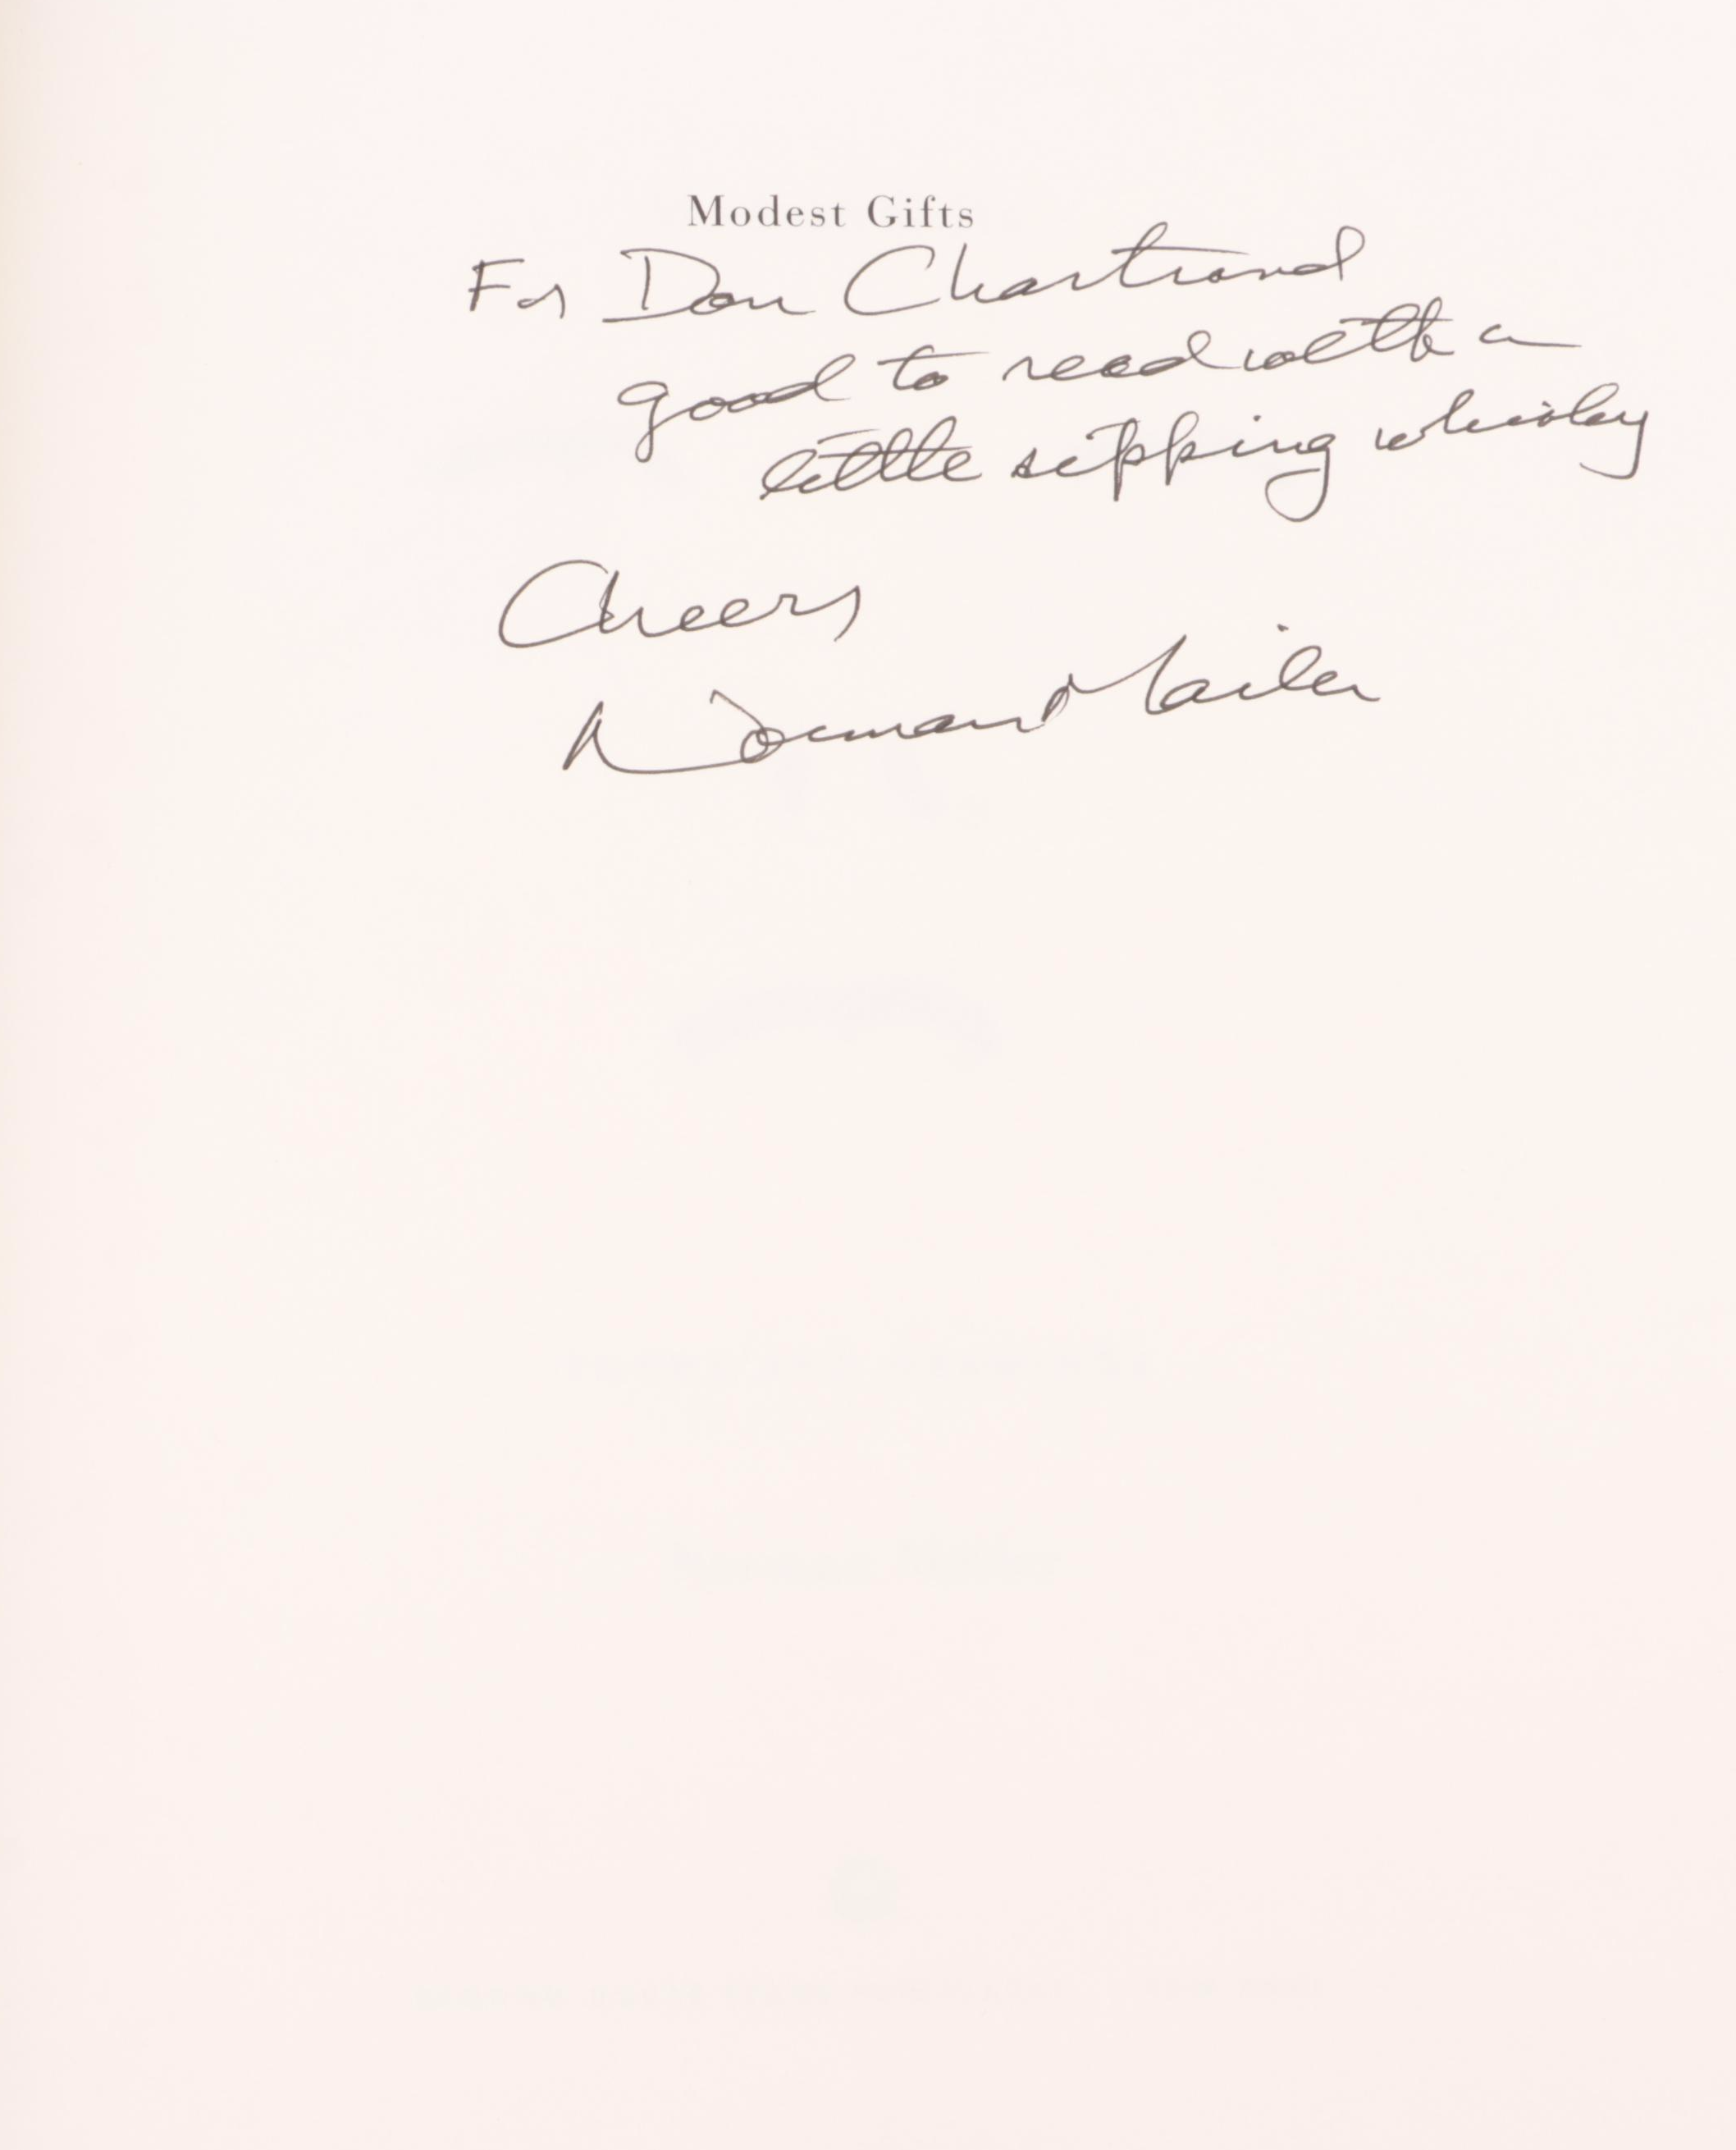 Modest Gifts
For Don Chartrand
good to read with a
little sipping whiskey
Cheers
Norman Mailer